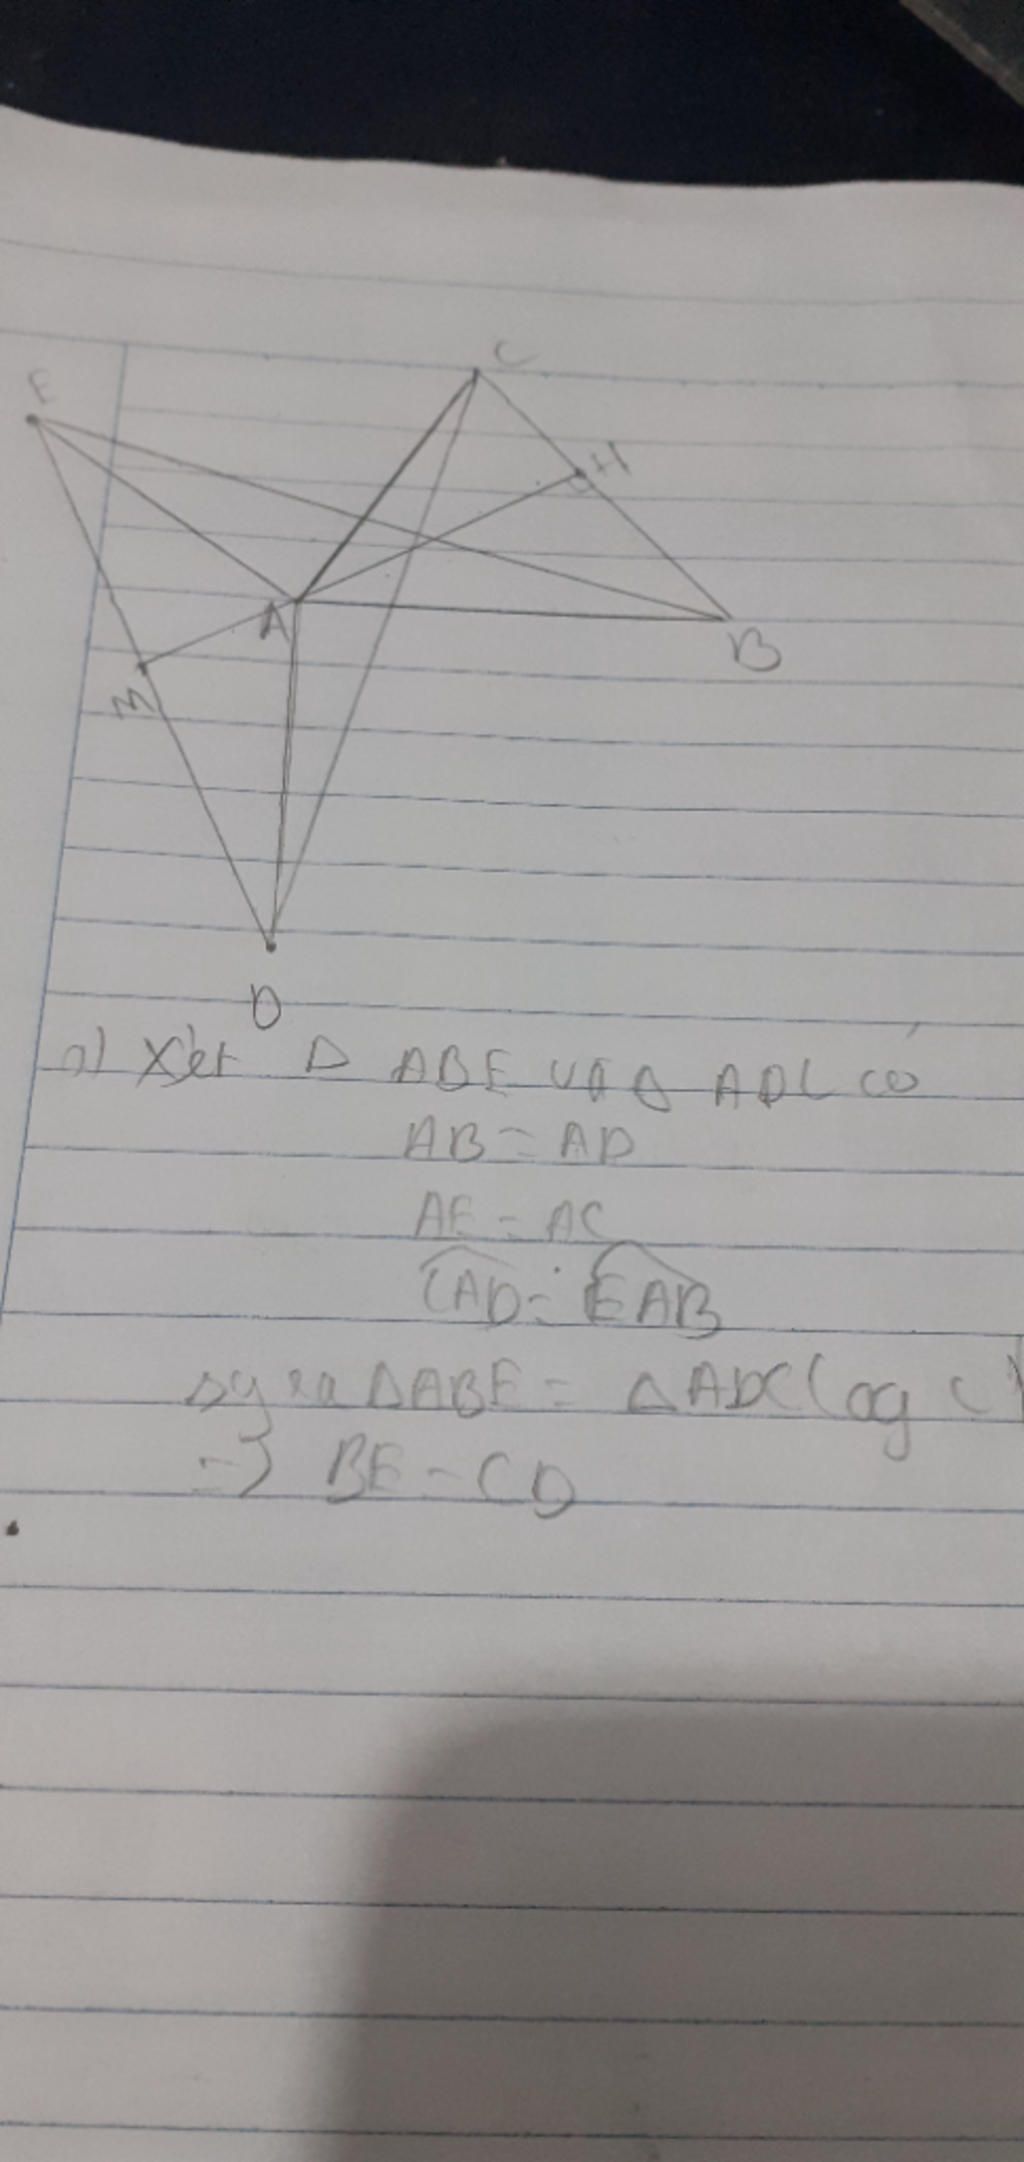 E
C
H
A
B
M
D
a) Xét Δ ABE và Δ ADC có
AB = AD
AE = AC
CAD = EAB
Δ ABE = Δ ADC (cg c)
=> BE = CD